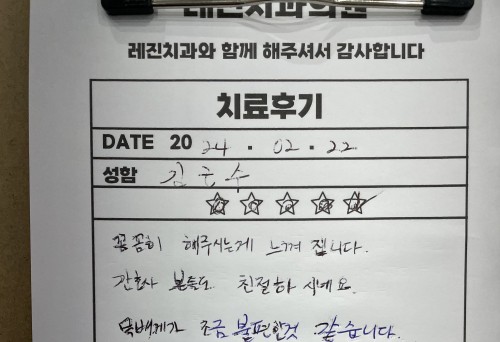 레진치과의원
레진치과와 함께 해주셔서 감사합니다
치료후기
DATE 20 24 . 02 . 22
성함 김 수
꼼꼼히 해주시는게 느껴 집니다.
간호사 분들도 친절하 시네요.
조금 불편한것 같습니다.